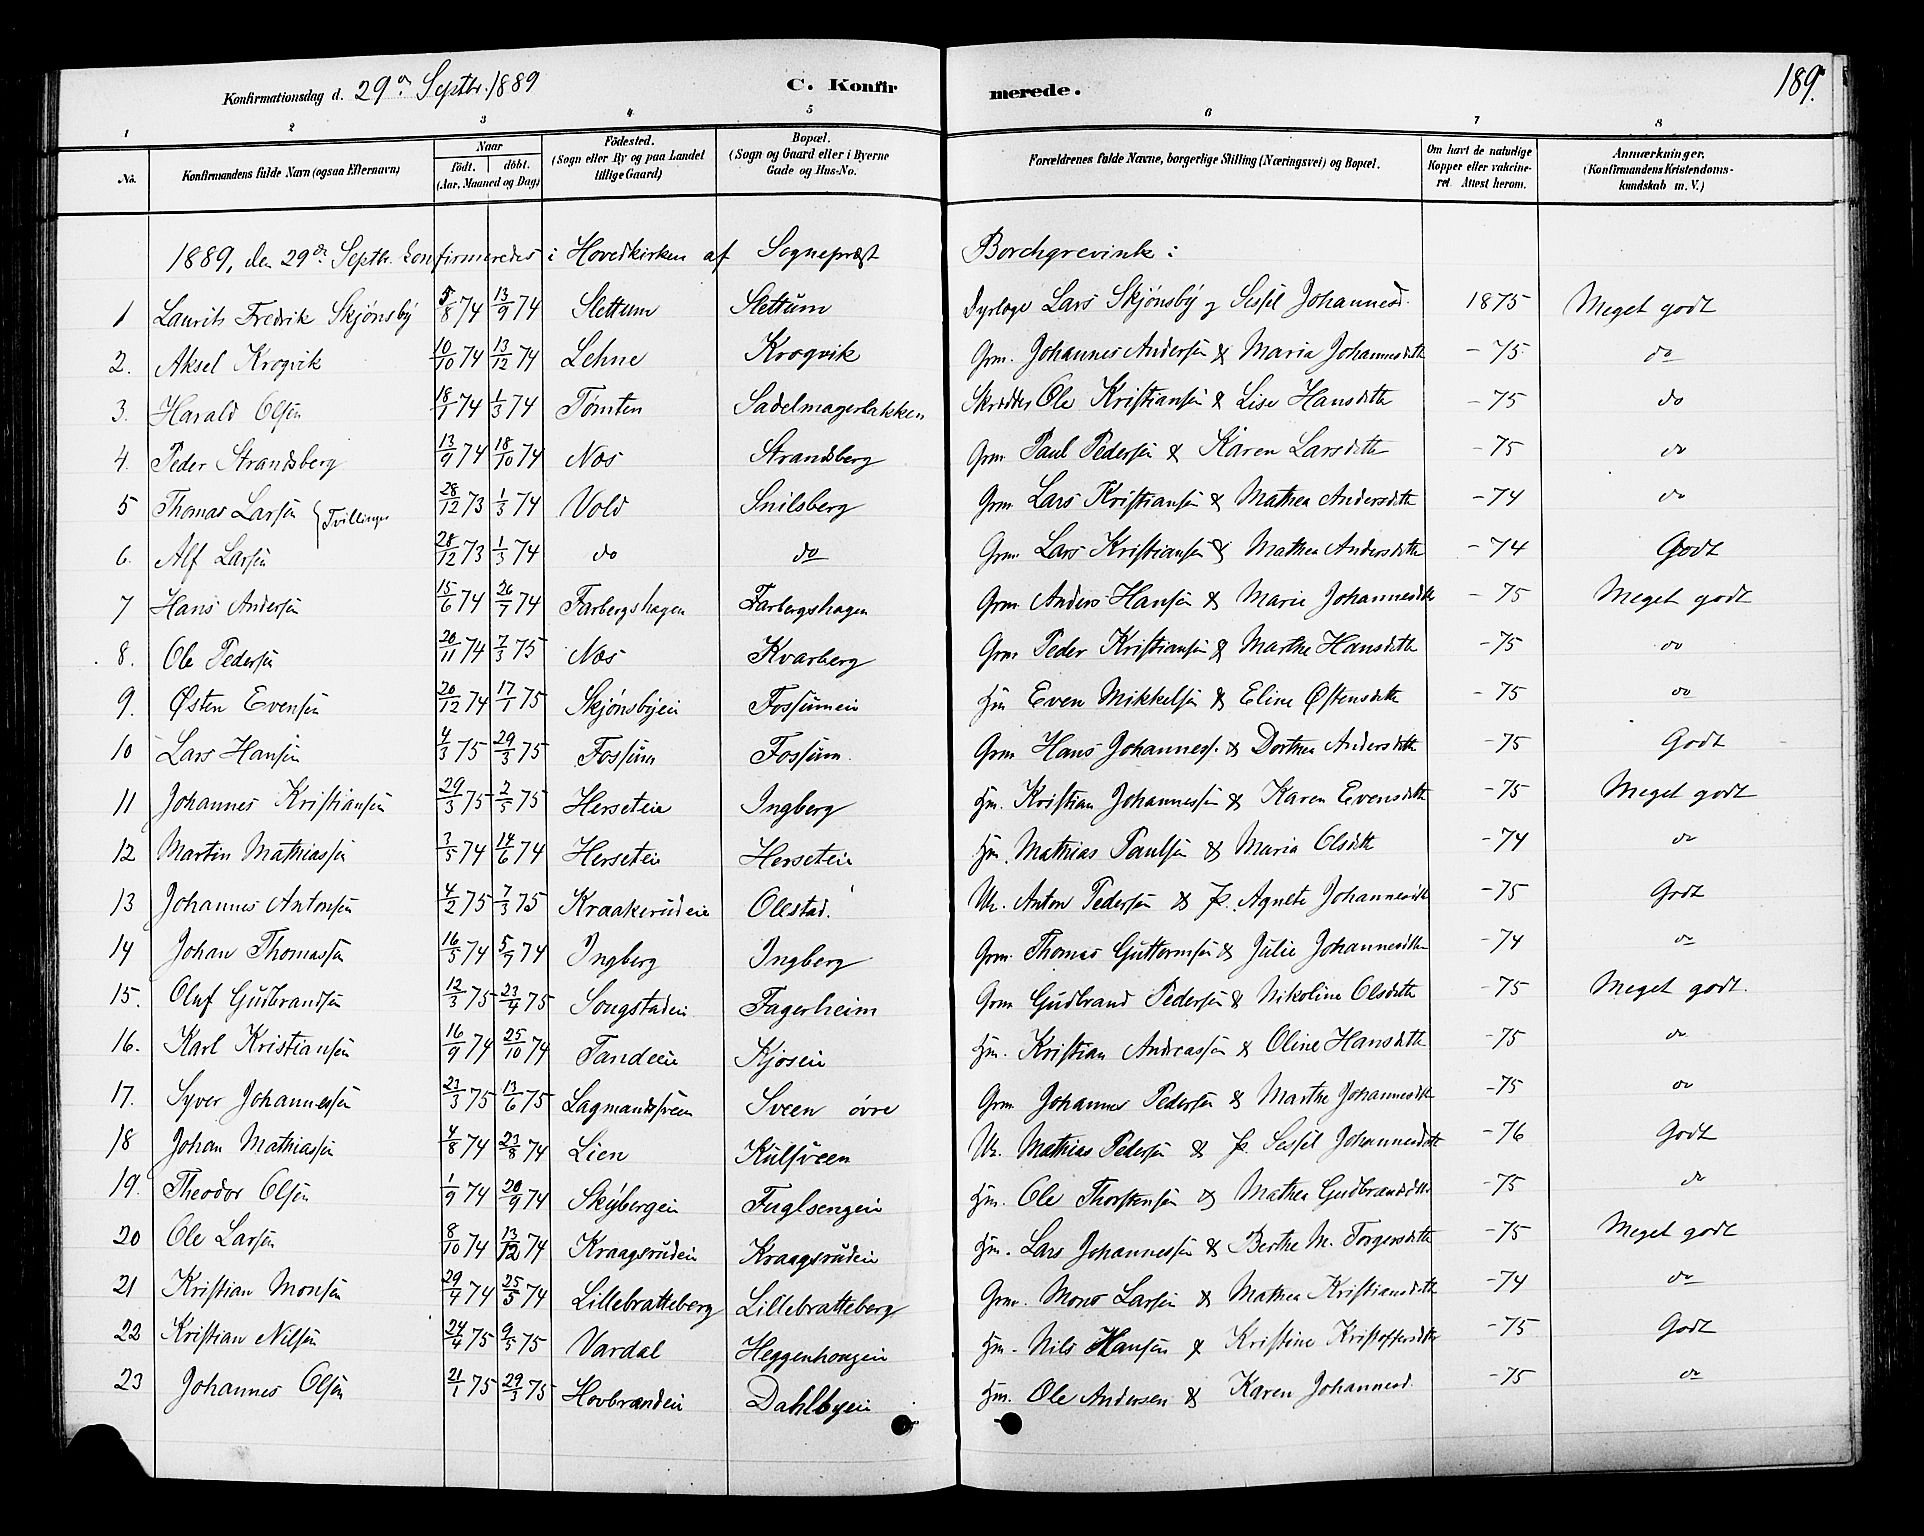 Konfirmationsdag d. 29de Septbr. 1889 C. Konfirmerede. 189.
1 2 3 4 5 6 7 8
No. Konfirmandens fulde Navn (ogsaa Efternavn) Naar født. døbt. (Aar, Maaned og Dag) Fødested. (Sogn eller By og paa Landet tillige Gaard) Bopæl. (Sogn og Gaard eller i Byerne Gade og Hus-No. Forældrenes fulde Navne, borgerlige Stilling (Næringsvei) og Bopæl. Om havt de naturlige Kopper eller vakcineret. Attest herom. Anmærkninger. (Konfirmandens Kristendomskundskab m. V.)
1889, den 29de Septbr. konfirmeredes i Hovedkirken af Sogneprest Borchgrevink:
1 Laurits Fredrik Skjönsby 5/8 74 13/9 74 Slettum Slettum Dyrlæge Lars Skjönsby og Sissil Johannesd. 1875 Meget godt
2. Aksel Krogvik 10/10 74 13/12 74 Lehne Krogvik Grm. Johannes Andersen & Maria Johannesdtr - 75 do
3. Harald Olsen 18/1 74 1/3 74 Tömten Sadelmagerbakken Skrædder Ole Kristiansen & Lise Hansdtr - 75 do
4. Peder Strandberg 13/9 74 18/10 74 Næs Strandberg Grm Paul Pedersen & Karen Larsdtr - 75 do
5 Thomas Larsen } Tvillinger 28/12 73 1/3 74 Vold Snilsberg Grm Lars Kristiansen & Mathea Andersdtr - 74 do
6. Alf Larsen 28/12 73 1/3 74 do do Grm. Lars Kristiansen & Mathea Andersdtr - 74 Godt
7 Hans Andersen 15/6 74 26/7 74 Farbergshagen Farbergshagen Grm. Anders Hansen & Marie Johannesdtr - 75 Meget godt
8. Ole Pedersen 20/11 74 7/3 75 Næs Kvarberg Grm Peder Kristiansen & Marthe Hansdtr - 75 do
9. Østen Evensen 20/12 74 17/1 75 Skjönsbyeie Fossumeie Hm Even Mikkelsen & Eline Østensdtr - 75 do
10 Lars Hansen 4/3 75 29/3 75 Fossum Fossum. Grm Hans Johanness. & Dorthea Andersdtr - 75 Godt
11 Johannes Kristiansen 29/3 75 2/5 75 Herseteie Ingberg Hm. Kristian Johannessen & Karen Evensdtr - 75 Meget godt
12 Martin Mathiassen 3/5 74 14/6 74 Herseteie Herseteie Hm. Mathias Paulsen & Maria Olsdtr - 74 do
13 Johannes Antonsen 4/2 75 7/3 75 Kraakerudeie Olestad. Uk. Anton Pedersen & P. Agnete Johannesdtr - 75 Godt
14 Johan Thomassen 16/5 74 5/7 74 Ingberg Ingberg Grm. Thomas Guttormsen & Julie Johannesdtr - 74 do
15. Oluf Gudbrandsen 12/3 75 23/4 75 Songstadeie Fagerheim Grm Gudbrand Pedersen & Nikoline Olsdtr - 75 Meget godt.
16. Karl Kristiansen 16/9 74 25/10 74 Tandeeie Kjoseie Hm. Kristian Andreassen & Oline Hansdtr - 75 do
17. Syver Johannessen 23/3 75 13/6 75 Lagmandsveen Sveen övre Grm Johannes Pedersen & Marthe Johannesdtr - 75 do
18 Johan Mathiassen 4/8 74 23/8 74 Lien Kulsveen Uk. Mathias Pedersen & P. Sissil Johannesdtr - 76 Godt
19. Theodor Olsen 1/9 74 20/9 74 Skybergeie Fuglsengeie Hm. Ole Thorstensen & Mathea Gudbrandsdtr - 75 do
20 Ole Larsen 8/10 74 13/12 74 Kraagsrudeie Kraagsrudeie Hm. Lars Johannessen & Berthe M. Torgersdtr - 75 Meget godt
21 Kristian Monsen 29/4 74 25/5 74 Lillebratteberg Lillebratteberg Grm. Mons Larsen & Mathea Kristiansdtr - 74 do
22 Kristian Nilsen 24/4 75 9/5 75 Vardal Heggenhougeie Hm. Nils Hansen & Kristine Kristoffersdtr - 75 Godt
23 Johannes Olsen 21/1 75 29/3 75 Hovbrændeie Dahlbyeie Hm. Ole Andersen & Karen Johannesd. - 75 do